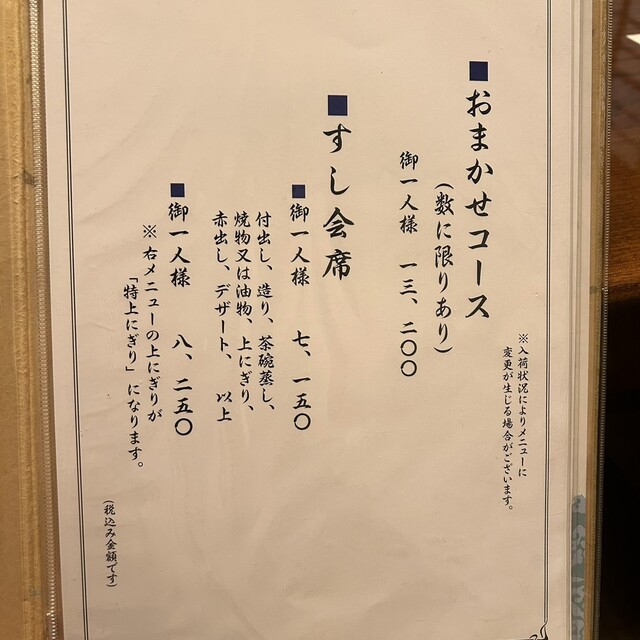 ※入荷状況によりメニューに
変更が生じる場合がございます。
■おまかせコース
（数に限りあり）
御一人様　一三、二〇〇
■すし会席
■御一人様　七、一五〇
付出し、造り、茶碗蒸し、
焼物又は油物、上にぎり、
赤出し、デザート、以上
■御一人様　八、二五〇
※右メニューの上にぎりが
「特上にぎり」になります。
（税込み金額です）